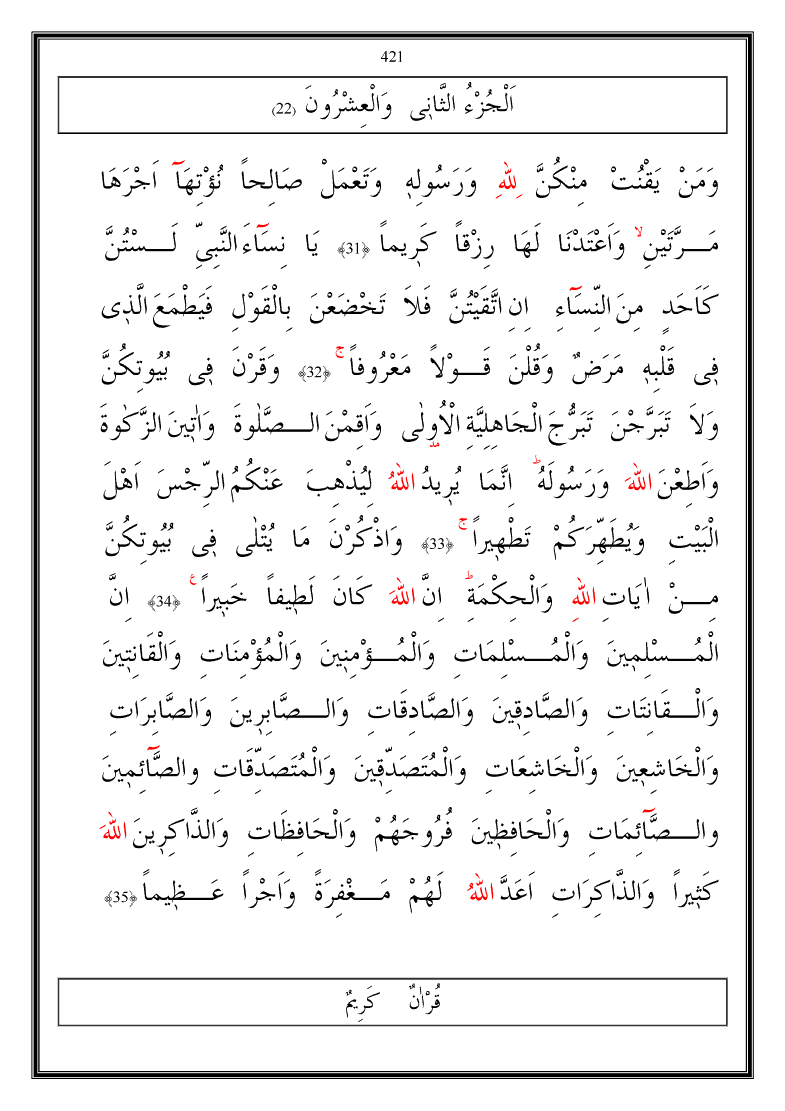 421
اَلْجُزْءُ الثَّانٖى وَالْعِشْرُونَ (22)
وَمَنْ يَقْنُتْ مِنْكُنَّ لِلّٰهِ وَرَسُولِهٖ وَتَعْمَلْ صَالِحاً نُؤْتِهَٓا اَجْرَهَا
مَــرَّتَيْنِۙ وَاَعْتَدْنَا لَهَا رِزْقاً كَرٖيماً ﴿31﴾ يَا نِسَٓاءَ النَّبِىِّ لَــسْتُنَّ
كَاَحَدٍ مِنَ النِّسَٓاءِ اِنِ اتَّقَيْتُنَّ فَلَا تَخْضَعْنَ بِالْقَوْلِ فَيَطْمَعَ الَّذٖى
فٖى قَلْبِهٖ مَرَضٌ وَقُلْنَ قَــوْلاً مَعْرُوفاًۚ ﴿32﴾ وَقَرْنَ فٖى بُيُوتِكُنَّ
وَلَا تَبَرَّجْنَ تَبَرُّجَ الْجَاهِلِيَّةِ الْاُولٰى وَاَقِمْنَ الــصَّلٰوةَ وَاٰتٖينَ الزَّكٰوةَ
وَاَطِعْنَ اللّٰهَ وَرَسُولَهُؕ اِنَّمَا يُرٖيدُ اللّٰهُ لِيُذْهِبَ عَنْكُمُ الرِّجْسَ اَهْلَ
الْبَيْتِ وَيُطَهِّرَكُمْ تَطْهٖيراًۚ ﴿33﴾ وَاذْكُرْنَ مَا يُتْلٰى فٖى بُيُوتِكُنَّ
مِــنْ اٰيَاتِ اللّٰهِ وَالْحِكْمَةِؕ اِنَّ اللّٰهَ كَانَ لَطٖيفاً خَبٖيراًࣖ ﴿34﴾ اِنَّ
الْمُــسْلِمٖينَ وَالْمُــسْلِمَاتِ وَالْمُــؤْمِنٖينَ وَالْمُؤْمِنَاتِ وَالْقَانِتٖينَ
وَالْــقَانِتَاتِ وَالصَّادِقٖينَ وَالصَّادِقَاتِ وَالــصَّابِرٖينَ وَالصَّابِرَاتِ
وَالْخَاشِعٖينَ وَالْخَاشِعَاتِ وَالْمُتَصَدِّقٖينَ وَالْمُتَصَدِّقَاتِ والصَّٓائِمٖينَ
والــصَّٓائِمَاتِ وَالْحَافِظٖينَ فُرُوجَهُمْ وَالْحَافِظَاتِ وَالذَّاكِرٖينَ اللّٰهَ
كَثٖيراً وَالذَّاكِرَاتِ اَعَدَّ اللّٰهُ لَهُمْ مَــغْفِرَةً وَاَجْراً عَــظٖيماً ﴿35﴾
قُرْاٰنٌ كَرِيمٌ